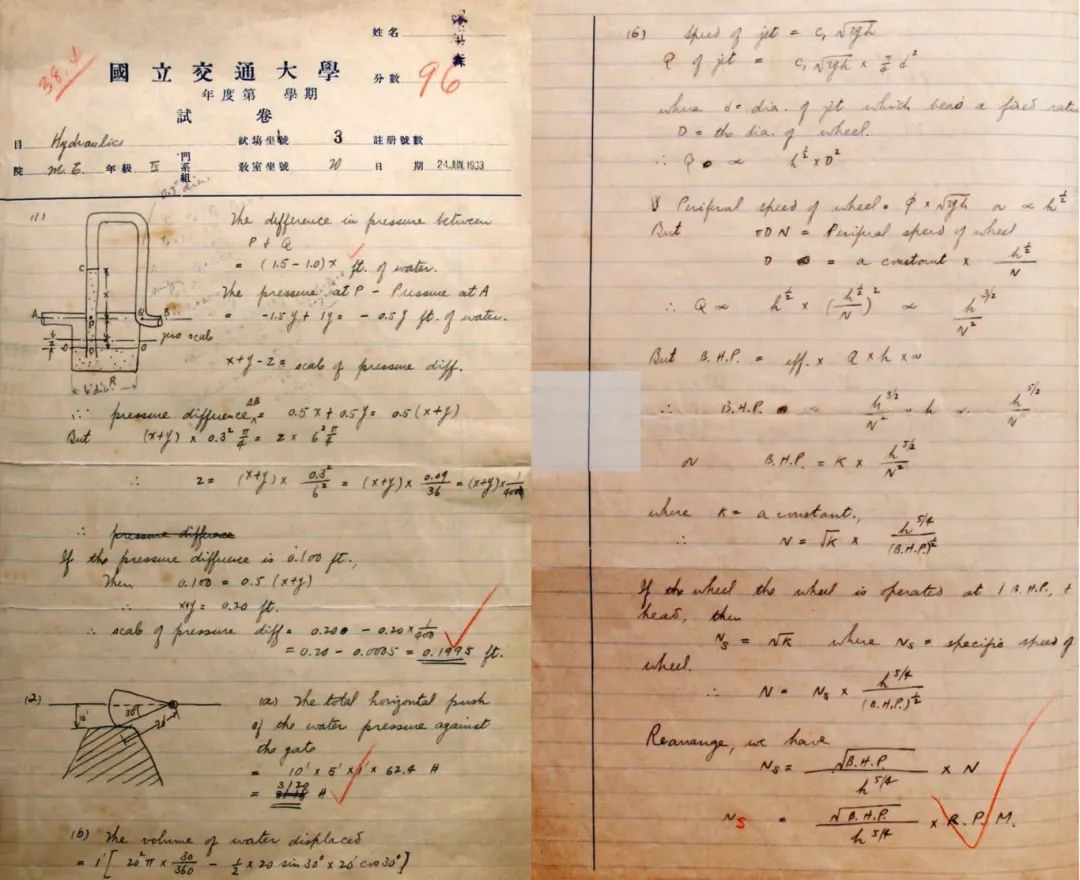 姓名
38.4
國立交通大學
分數 96
年度第 學期
試卷
目 Hydraulics 試場坐號 3 註册號數
院 M.E. 年級 IV 門系組 教室坐號 20 日期 24.JUN.1933
0.3" dia.
(1)
The difference in pressure between
P + Q
= (1.5 - 1.0) x ft. of water.
The pressure at P - Pressure at A
= -1.5 y + 1 y = - 0.5 y ft. of water.
C
A
B
zero scale
R
6" dia.
x+y-z = scale of pressure diff.
∴ pressure difference AB = 0.5 x + 0.5 y = 0.5 (x+y)
But (x+y) x 0.3² π/4 = z x 6² π/4
∴ z = (x+y) x 0.3²/6² = (x+y) x 0.09/36 = (x+y) x 1/400
∴ pressure difference
If the pressure difference is 0.100 ft.,
Then 0.100 = 0.5 (x+y)
∴ x+y = 0.20 ft.
∴ scale of pressure diff = 0.200 - 0.20 x 1/400
= 0.20 - 0.0005 = 0.1995 ft.
(2)
10'
30°
20'
(a) The total horizontal push
of the water pressure against
the gate
= 10' x 5' x 1' x 62.4 #
= 3120 #
(b) The volume of water displaced
= 1' [ 20² π x 30/360 - 1/2 x 20 sin 30° x 20' cos 30° ]
(6) speed of jet = c, √2gh
Q of jet = c, √2gh x π/4 d²
where d = dia. of jet which bears a fixed ratio
D = the dia. of wheel.
∴ Q ∝ h^½ x D²
Periferal speed of wheel = φ x √2gh or ∝ h^½
But πDN = Periferal speed of wheel
D = a constant x h^½/N
∴ Q ∝ h^½ x (h^½/N)² ∝ h^3/2/N²
But B.H.P. = eff. x Q x h x w
∴ B.H.P. ∝ h^3/2/N² x h ∝ h^5/2/N²
or B.H.P. = K x h^5/2/N²
where K = a constant.,
∴ N = √K x h^5/4/(B.H.P.)^½
If the wheel the wheel is operated at 1 B.H.P., +
head, then
Ns = √K where Ns = specific speed of
wheel.
∴ N = Ns x h^5/4/(B.H.P.)^½
Rearrange, we have
Ns = √B.H.P./h^5/4 x N
Ns = √B.H.P./h^5/4 x R.P.M.